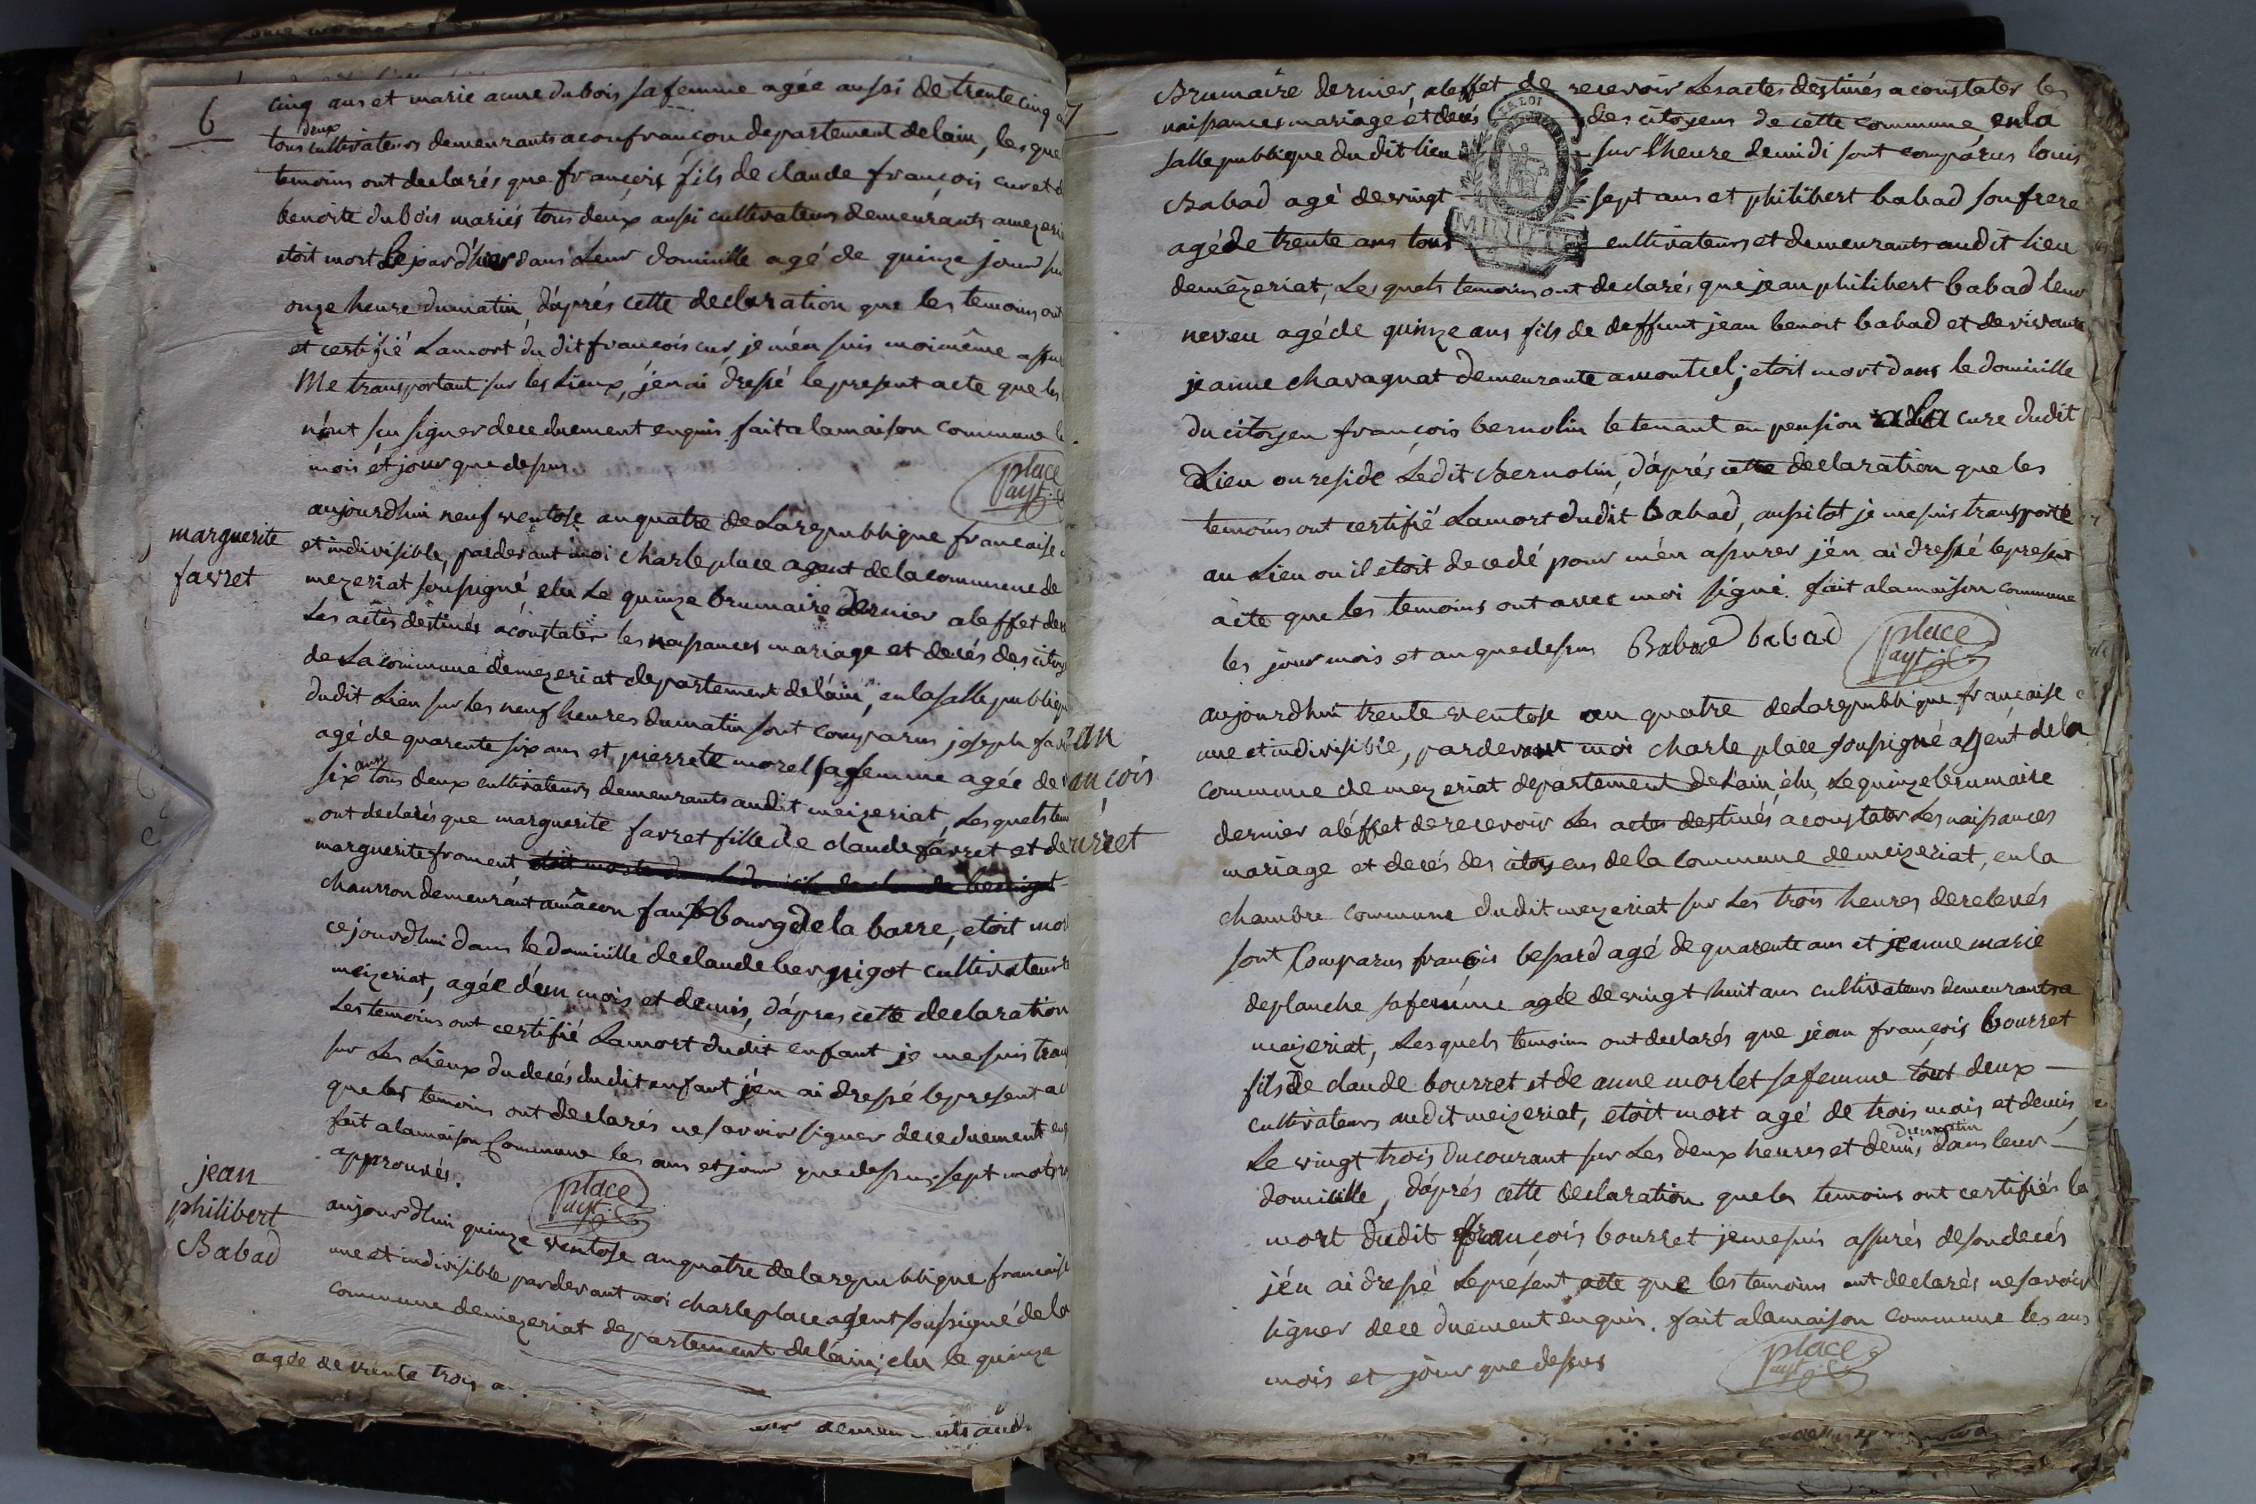 6
cinq ans et marie acure dubois sa femme agée aussi de trente cinq
tous deux cultivateurs demeurants a confrançon departement delain, les que
temoins ont declarés que françois fils de claude françois curet
benoite dubois mariés tous deux aussi cultivateurs demeurants amezeri
etoit mort le jour d'hier dans leur domicille agé de quinze jour sur
onze heure dumatin d'aprés cette declaration que les temoins ont
et certifié lamort du dit francois cur, je mén suis moimême assu
Me transportant sur les lieux, j'en ai dressé lepresent acte que les
n'ont scu signer dece duement enquis fait alamaison commune
mois et jour que dessus
place agt
marguerite
favret
aujourdhui neuf ventose anquatre de La republique francaise
et indivisible, pardevant moi charle place agent de la commune de
mezeriat soussigné elu Le quinze brumaire dernier aleffet de
Les actes destinés aconstater les naissances mariage et decés des citoy
de La commune demezeriat departement deláin, en lasalle publiq
dudit Lieu sur les neuf heures dumatin sont comparus joseph fav
agé de quarente six ans et pierrette morel sa femme agée de
six ans tous deux cultivateurs demeurants audit meizeriat, Les quels tem
ont declarés que marguerite favret fille de claude favret et de
marguerite froment,
chauron demeurant amâcon fauxbourg de la barre, etoit mo
cejourdhui dans le domicille declaude berguigot cultivateur
meizeriat, agée d'un mois et demis, d'apres cette declaration
Les temoins ont certifié Lamort dudit enfant je mesuis tran
sur les Lieux du decés dudit enfant j'en ai dressé lepresent a
que les temoins ont declarés ne savoir signer dece duement en
fait alamaison Commune les ans et jour que dessus. sept mots
approuvés.
place agt
jean
philibert
Babad
aujourdhui quinze ventose anquatre delarepublique francaise
une et indivisible pardevant moi charle place agent soussigné de la
commune demezeriat departement deláin, elu le quinze
agée de trente trois
7
Brumaire dernier aleffet de recevoir Lesactes destinés aconstater les
naissances mariage et decés des citoyens de cette commune en la
salle publique dudit lieu sur l'heure demidi sont comparus louis
Babad agé devingt sept ans et philibert babad son frere
agé de trente ans tous cultivateurs et demeurants audit lieu
LA LOI
MINUTE
demezeriat, Les quels temoins ont declarés que jean philibert babad leur
neveu agé de quinze ans fils de deffunt jean benoit babad et de vivante
jeanne chavagnat demeurante amontcel; etoit mort dans le domicille
du citoyen françois bernolin le tenant en pension ala cure dudit
Lieu ou reside Ledit Bernolin, d'aprés cette declaration que les
temoins ont certifié Lamort dudit babad, aussitot je mesuis transporté
au Lieu ou il etoit decedé pour m'en assurer j'én ai dressé lepresent
acte que les temoins ont avec moi signé. fait alamaison commune
les jour mois et an quedessus Babad babad place agt
an
ançois
urret
aujourdhui trente ventose an quatre delarepublique française
une et indivisible, pardevant moi charle place soussigné agént de la
commune de mezeriat departement de L'ain, élu, Le quinze brumaire
dernier aléffet de recevoir Les actes destinés aconstater Les naissances
mariage et decés des citoyens de la Commune demeizeriat, en la
chambre commune dudit mezeriat sur Les trois heures derelevés
sont Comparus françois bessard agé de quarente ans et jeanne marie
deplanche sa femme agée de vingt huit ans cultivateurs demeurants a
meizeriat, Les quels temoins ont declarés que jéan françois bourret
fils de claude bourret et de anne morlet sa femme tout deux
cultivateurs audit meizeriat, etoit mort agé de trois mois et demis
Le vingt trois ducourant sur Les deux heures et demis dumatin dans leur
domicille, d'aprés cette declaration que les temoins ont certifiés la
mort dudit françois bourret jemesuis assurés desondecés
j'én ai dressé Leprésent acte que les temoins ont declarés nesavoir
signer dece duement enquis. fait alamaison commune les ans
mois et jour que dessus
place agt